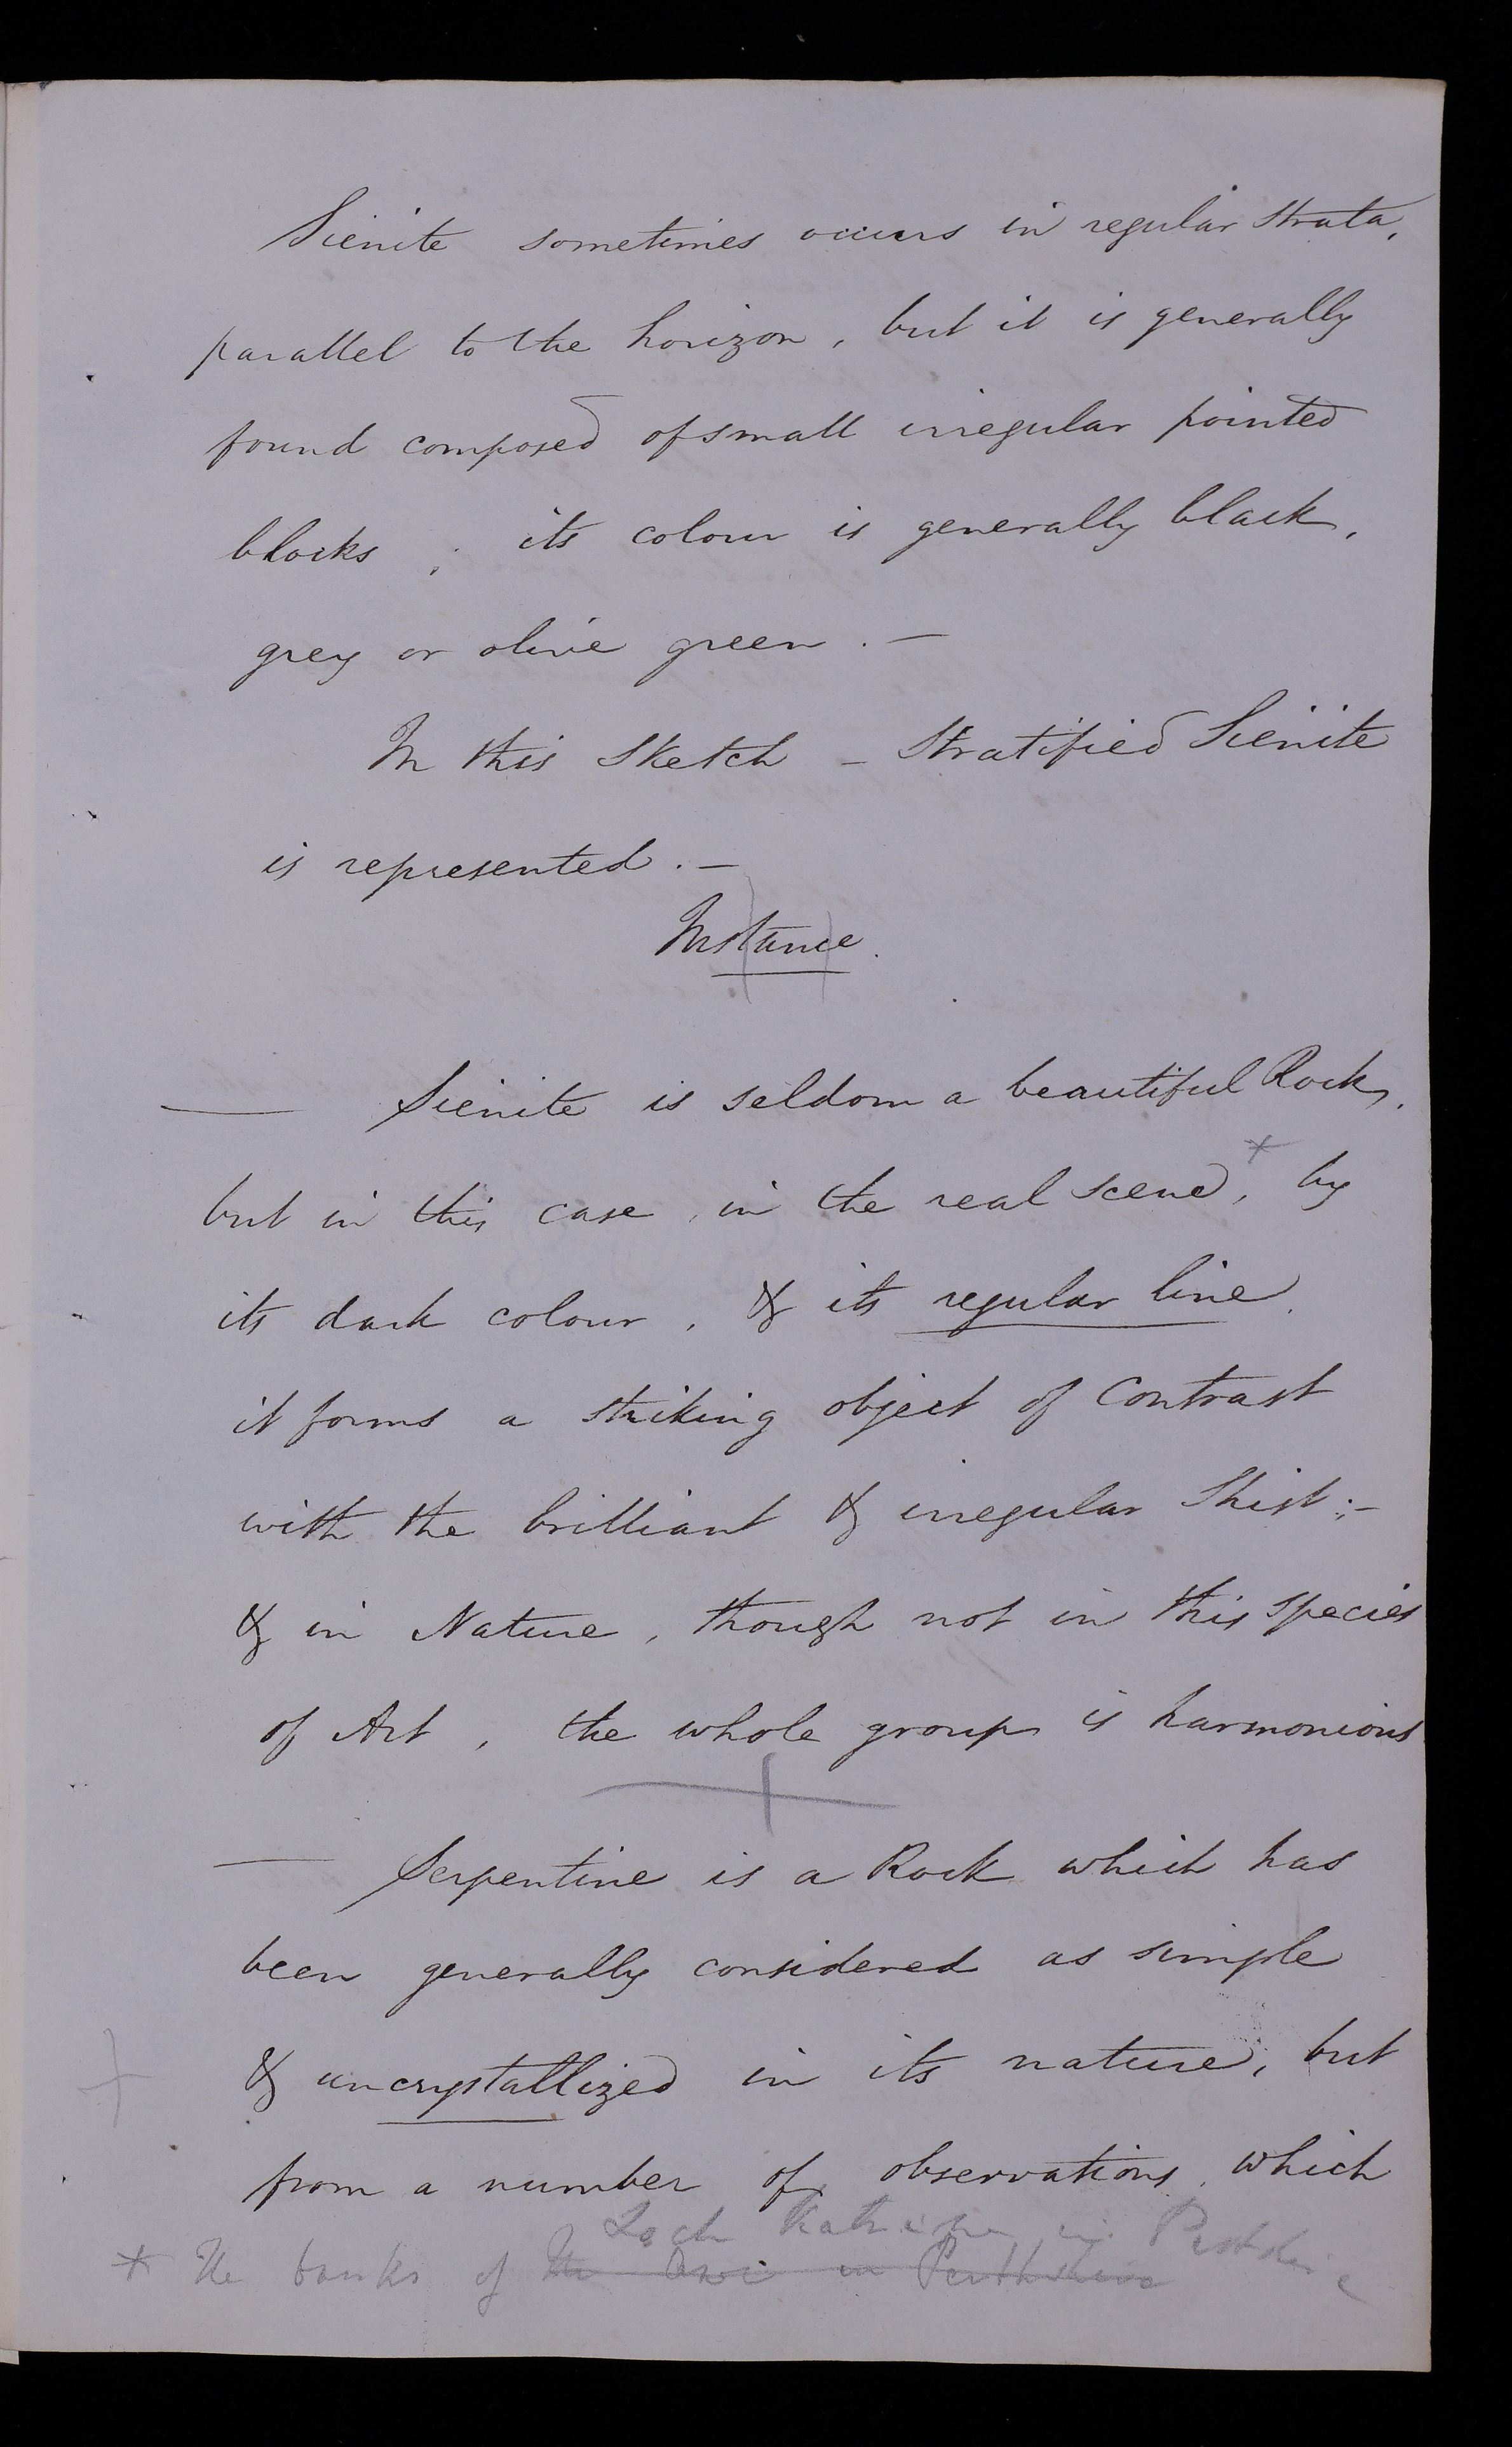 Sienite sometimes occurs in regular strata,
parallel to the horizon, but it is generally
found composed of small irregular pointed
blocks; its colour is generally black,
grey or olive green. —
In this Sketch — Stratified Sienite
is represented. —
Instance.
— Sienite is seldom a beautiful Rock,
but in this case, in the real scene,* by
its dark colour, & its regular line,
it forms a striking object of Contrast
with the brilliant & irregular Shist:;—
& in Nature, though not in this species
of Art, the whole group is harmonious
— Serpentine is a Rock which has
been generally considered as simple
& uncrystallized in its nature, but
from a number of observations, which
Loch Katrine in Perthshire
* The banks of the in Perthshire